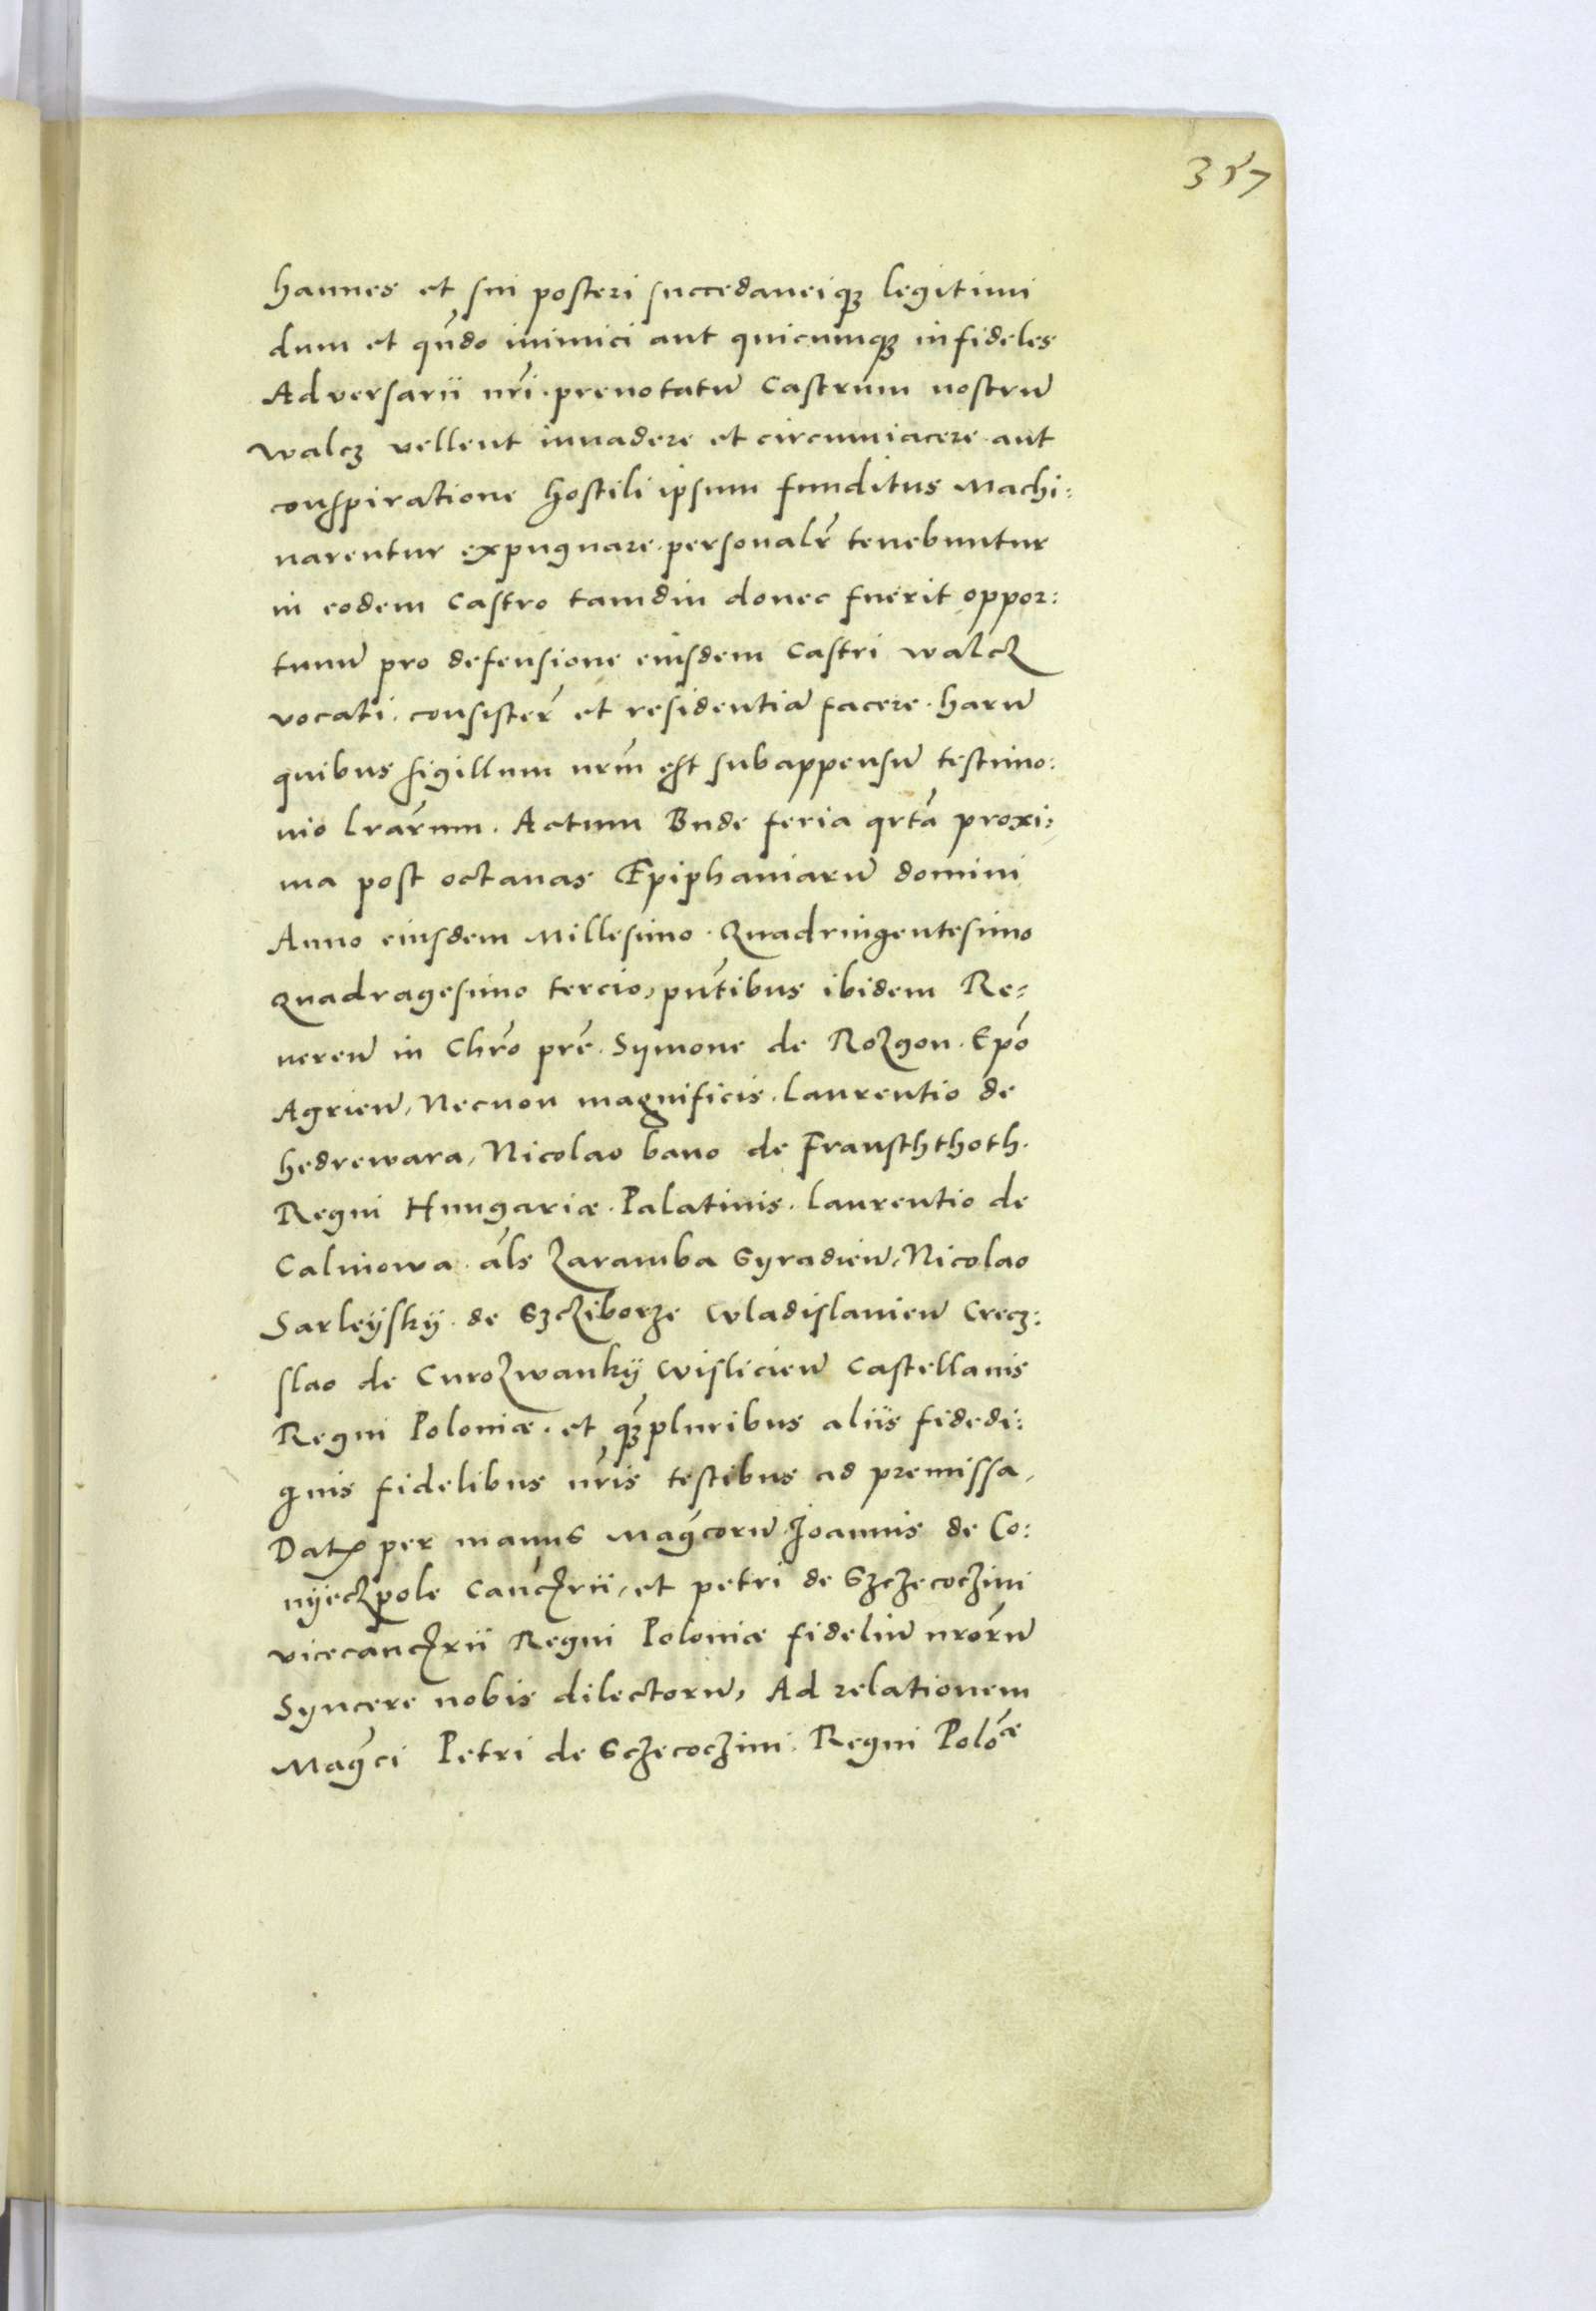 357
hannes et sui posteri succedaneiqȝ legitimi
dum et qn̄do inimici aut quicumqȝ infideles
Adversarii nr̄i. prenotatū Castrum nostrū
walcȝ vellent invadere et circumiacere aut
conspiratione hostili ipsum funditus Machi:
narentur expugnare. personalr̄ tenebuntur
in eodem Castro tamdiu donec fuerit oppor:
tunū pro defensione eiusdem Castri walcz
vocati. consister̄ et residentiā facere. harū
quibus sigillum nrm̄ est subappensū testimo:
nio lrārum. Actum Bude feria qrtā proxi:
ma post octavas Epiphaniarū domini
Anno eiusdem Millesimo. Quadringentesimo
Quadragesimo tercio, pn̄tibus ibidem Re:
veren̄ in Chrō prē. Symone de Rozgon. Epō
Agrien̄, Necnon magnificis. Laurentio de
hedrewara, Nicolao bano de Fransthhoth.
Regni Hungariæ. Palatinis. Laurentio de
Calniowa. āls Zaramba Syradien̄, Nicolao
Sarleÿskÿ. de Sczciborze Wladislavien̄ Crecz:
slao de Curozwankÿ Wislicien̄ Castellanis
Regni Poloniæ. et qȝ̄pluribus aliis fidedi:
gnis fidelibus nr̄is testibus ad premissa,
Datȝ per manus Magc̄orū Joannis de Co:
nÿeczpole Canc̄rii, et petri de Szczecoczini
vicecanc̄rii Regni Poloniæ fideliū nrōrū
Syncere nobis dilectorū, Ad relationem
Magc̄i Petri de Sczecoczini. Regni Polōæ